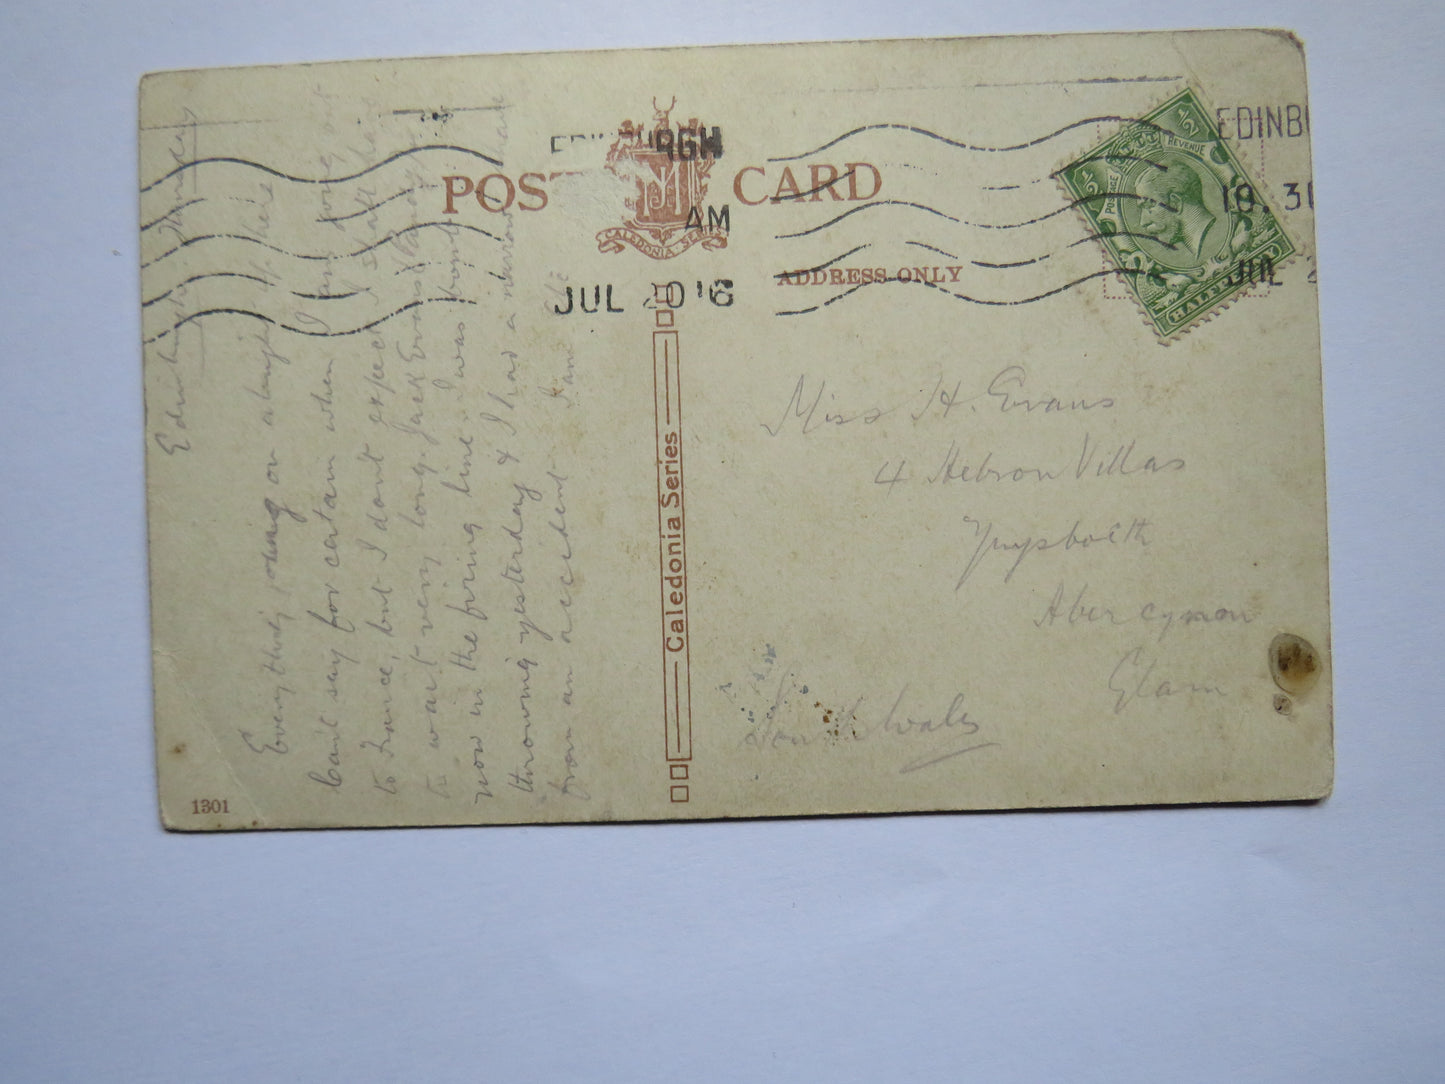 POST CARD
CALEDONIA SERIES
ADDRESS ONLY
EDINBURGH
AM
JUL 20 16
EDINBU
10.3
JUL 2
POSTAGE
REVENUE
1/2
1/2
HALFPENNY
Caledonia Series
1301
Edinburgh. Thursday
Everything going on alright here
Can't say for certain when I am going out
to France, but I dont expect I shall have
to wait very long. Jack Evans
now in the firing line. I was bomb
throwing yesterday & I had a narrow
from an accident. I am
Miss H. Evans
4 Hebron Villas
Ynysboeth
Abercynon
Glam
South Wales